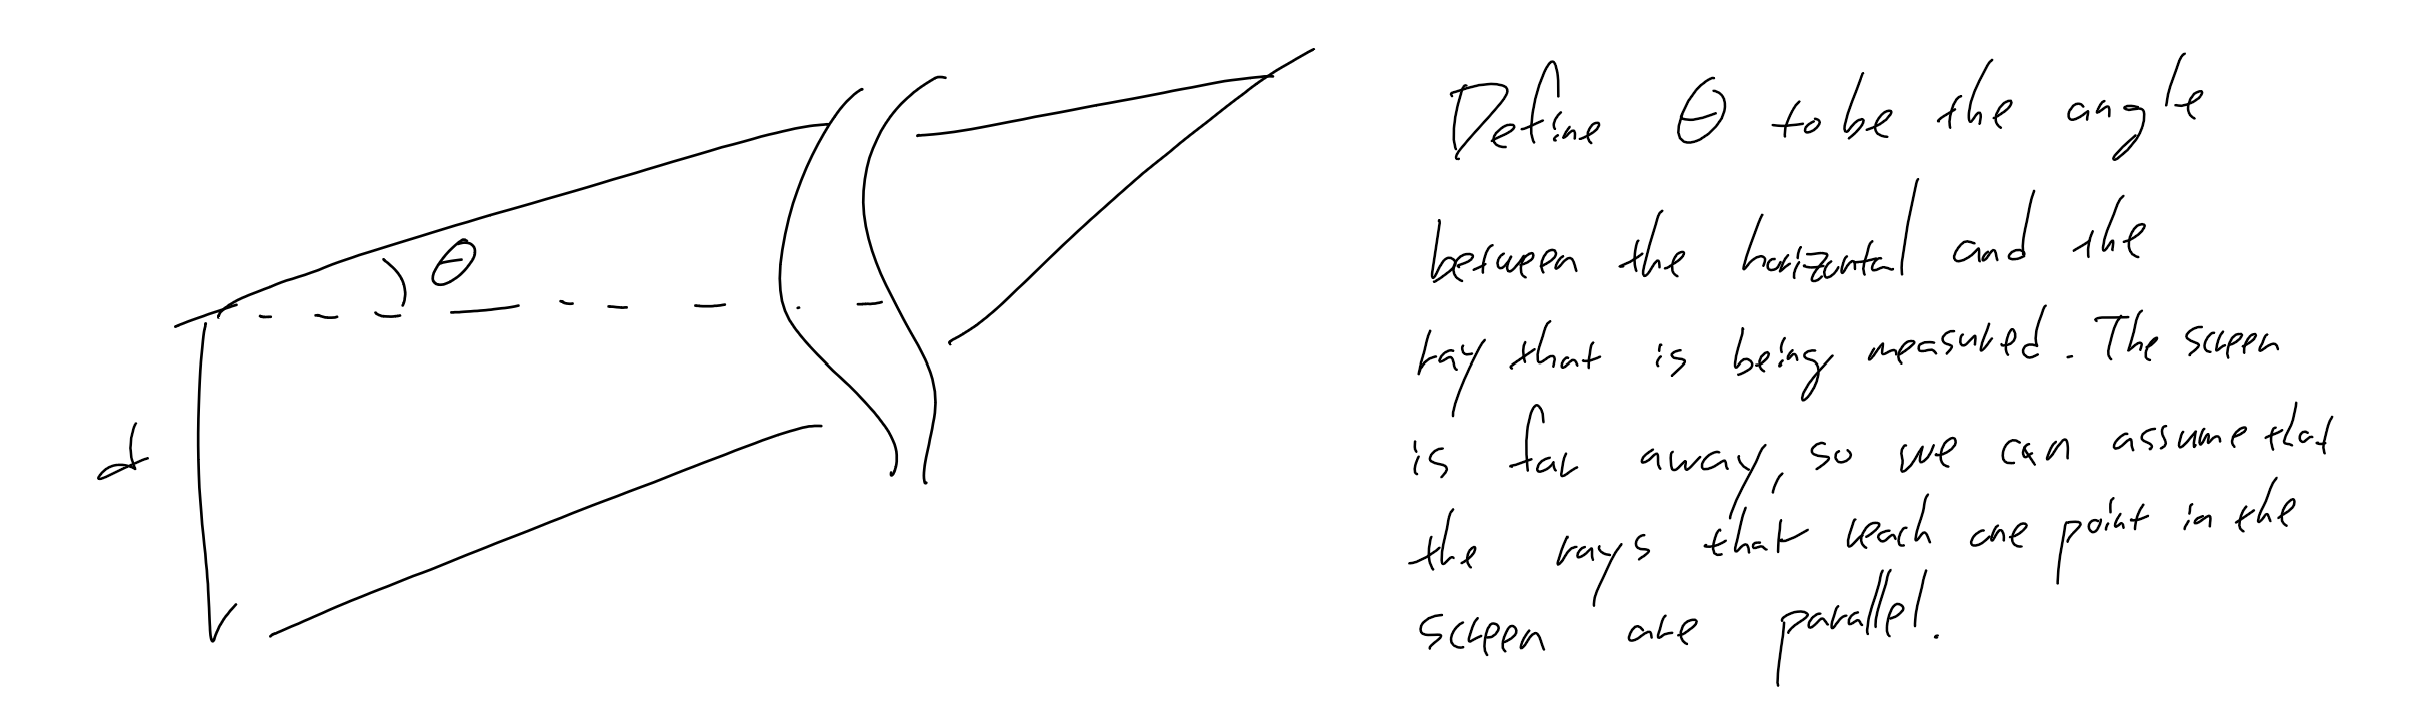 Define θ to be the angle
between the horizontal and the
ray that is being measured. The screen
is far away, so we can assume that
the rays that reach one point in the
screen are parallel.
θ
d